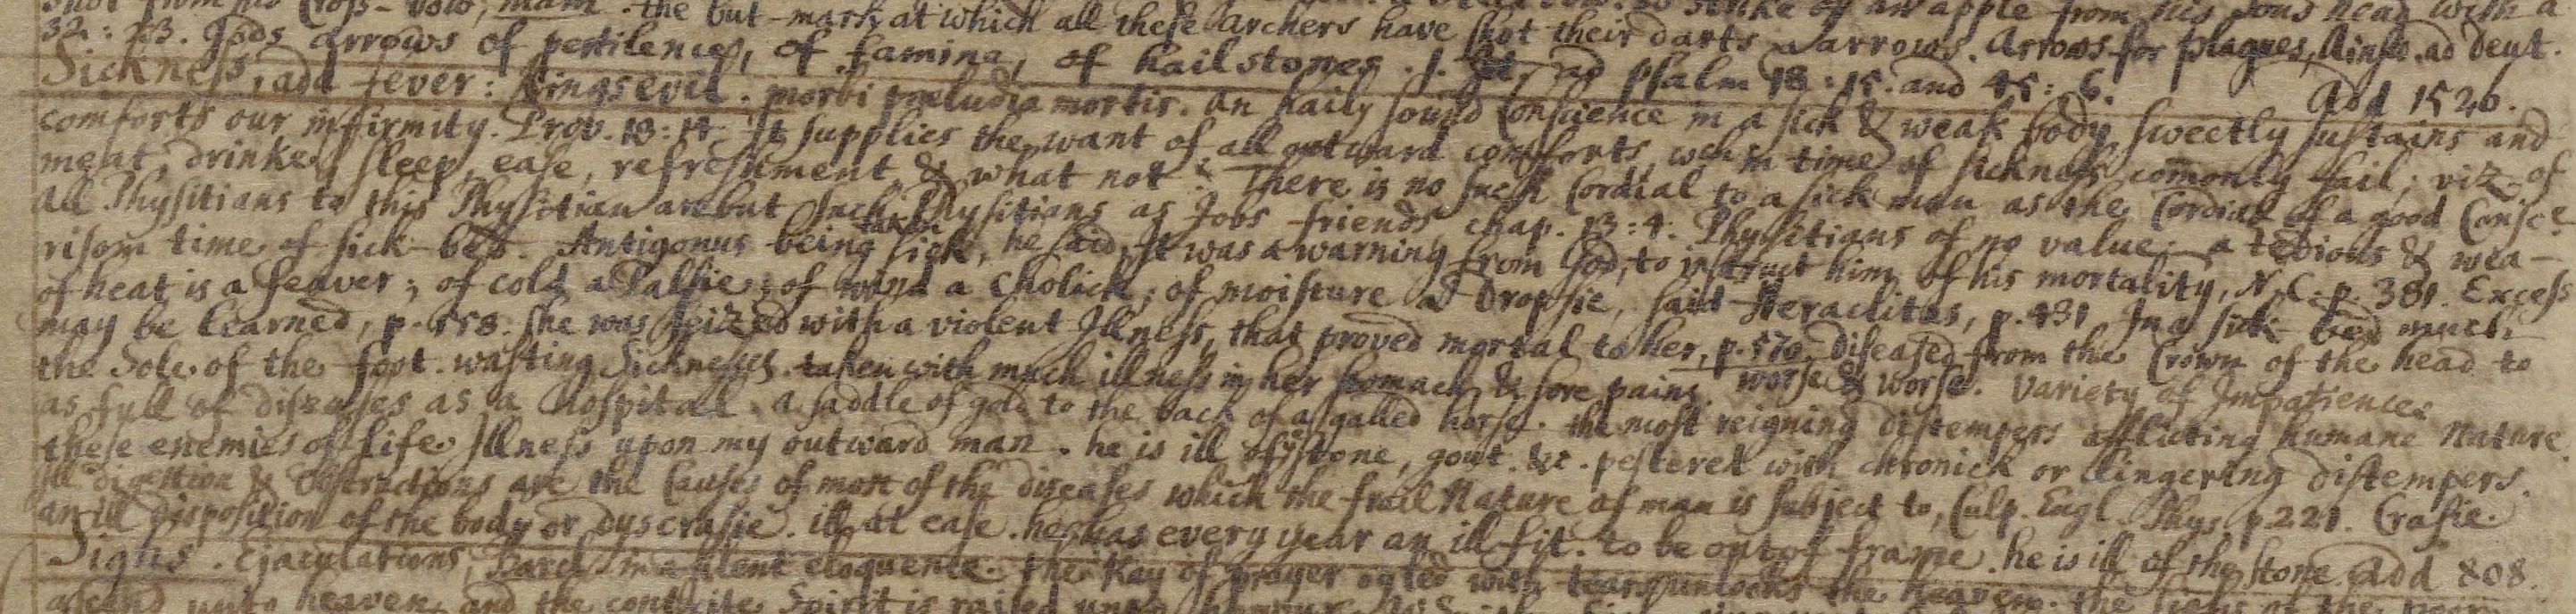 shot from his Cross-bow, man the but-mark at which all these archers have shot their darts arrows. Arrows for plagues, Ainsw. ad deut.
32: 23. Gods arrows of pestilence, of famine, of hailstones. psalm 18: 15. and 45: 6. Add 1520.
Sickness, add fever: Kings evil. morbi praeludia mortis. An haily sound Conscience in a sick & weak body sweetly sustains and
comforts our infirmity. Prov. 18: 14. It supplies the want of all outward comforts, wch in time of sickness comonly fail; viz. of
meat, drinke, sleep, ease, refreshment & what not. There is no such Cordial to a sick man as the Cordial of a good Consce.
All Physitians to this Physitian are but such Physitians as Jobs friends chap. 13: 4. Physitians of no value. a tedious & wea-
risom time of sick-bed. Antigonus being taken sick, he said, It was a warning from God, to instruct him of his mortality, N.C. p. 381. Excess
of heat is a feaver; of cold a Palsie; of wind a Cholick; of moisture a Dropsie, said Heraclitus, p. 431 In a sick-bed much
may be learned, p. 558. she was seized with a violent Illness, that proved mortal to her, p. 570. diseased from the Crown of the head to
the Sole of the foot. wasting Sicknesses. taken with much illness in her stomach & sore pains. worse & worse. Variety of Impatiences
as full of diseases as a Hospital. a saddle of gold to the back of a galled horse. the most reigning distempers afflicting humane Nature.
these enemies of life. Illness upon my outward man. he is ill of ye stone, gout. &c. pestered with chronick or lingering distempers.
Ill digestion & Obstructions are the Causes of most of the diseases which the frail Nature of man is subject to, Culp. Engl. Phys. p. 221. Crasie.
an ill disposition of the body or dyscrasie. ill at ease. he has every year an ill fit. to be out of frame. he is ill of the stone. Add 808.
Sighs. Ejaculations, in a silent eloquence. the Kay of prayer oyled with tears unlocks the heaven. the sighs of the
ascend unto heaven, and the contrite Spirit is raised